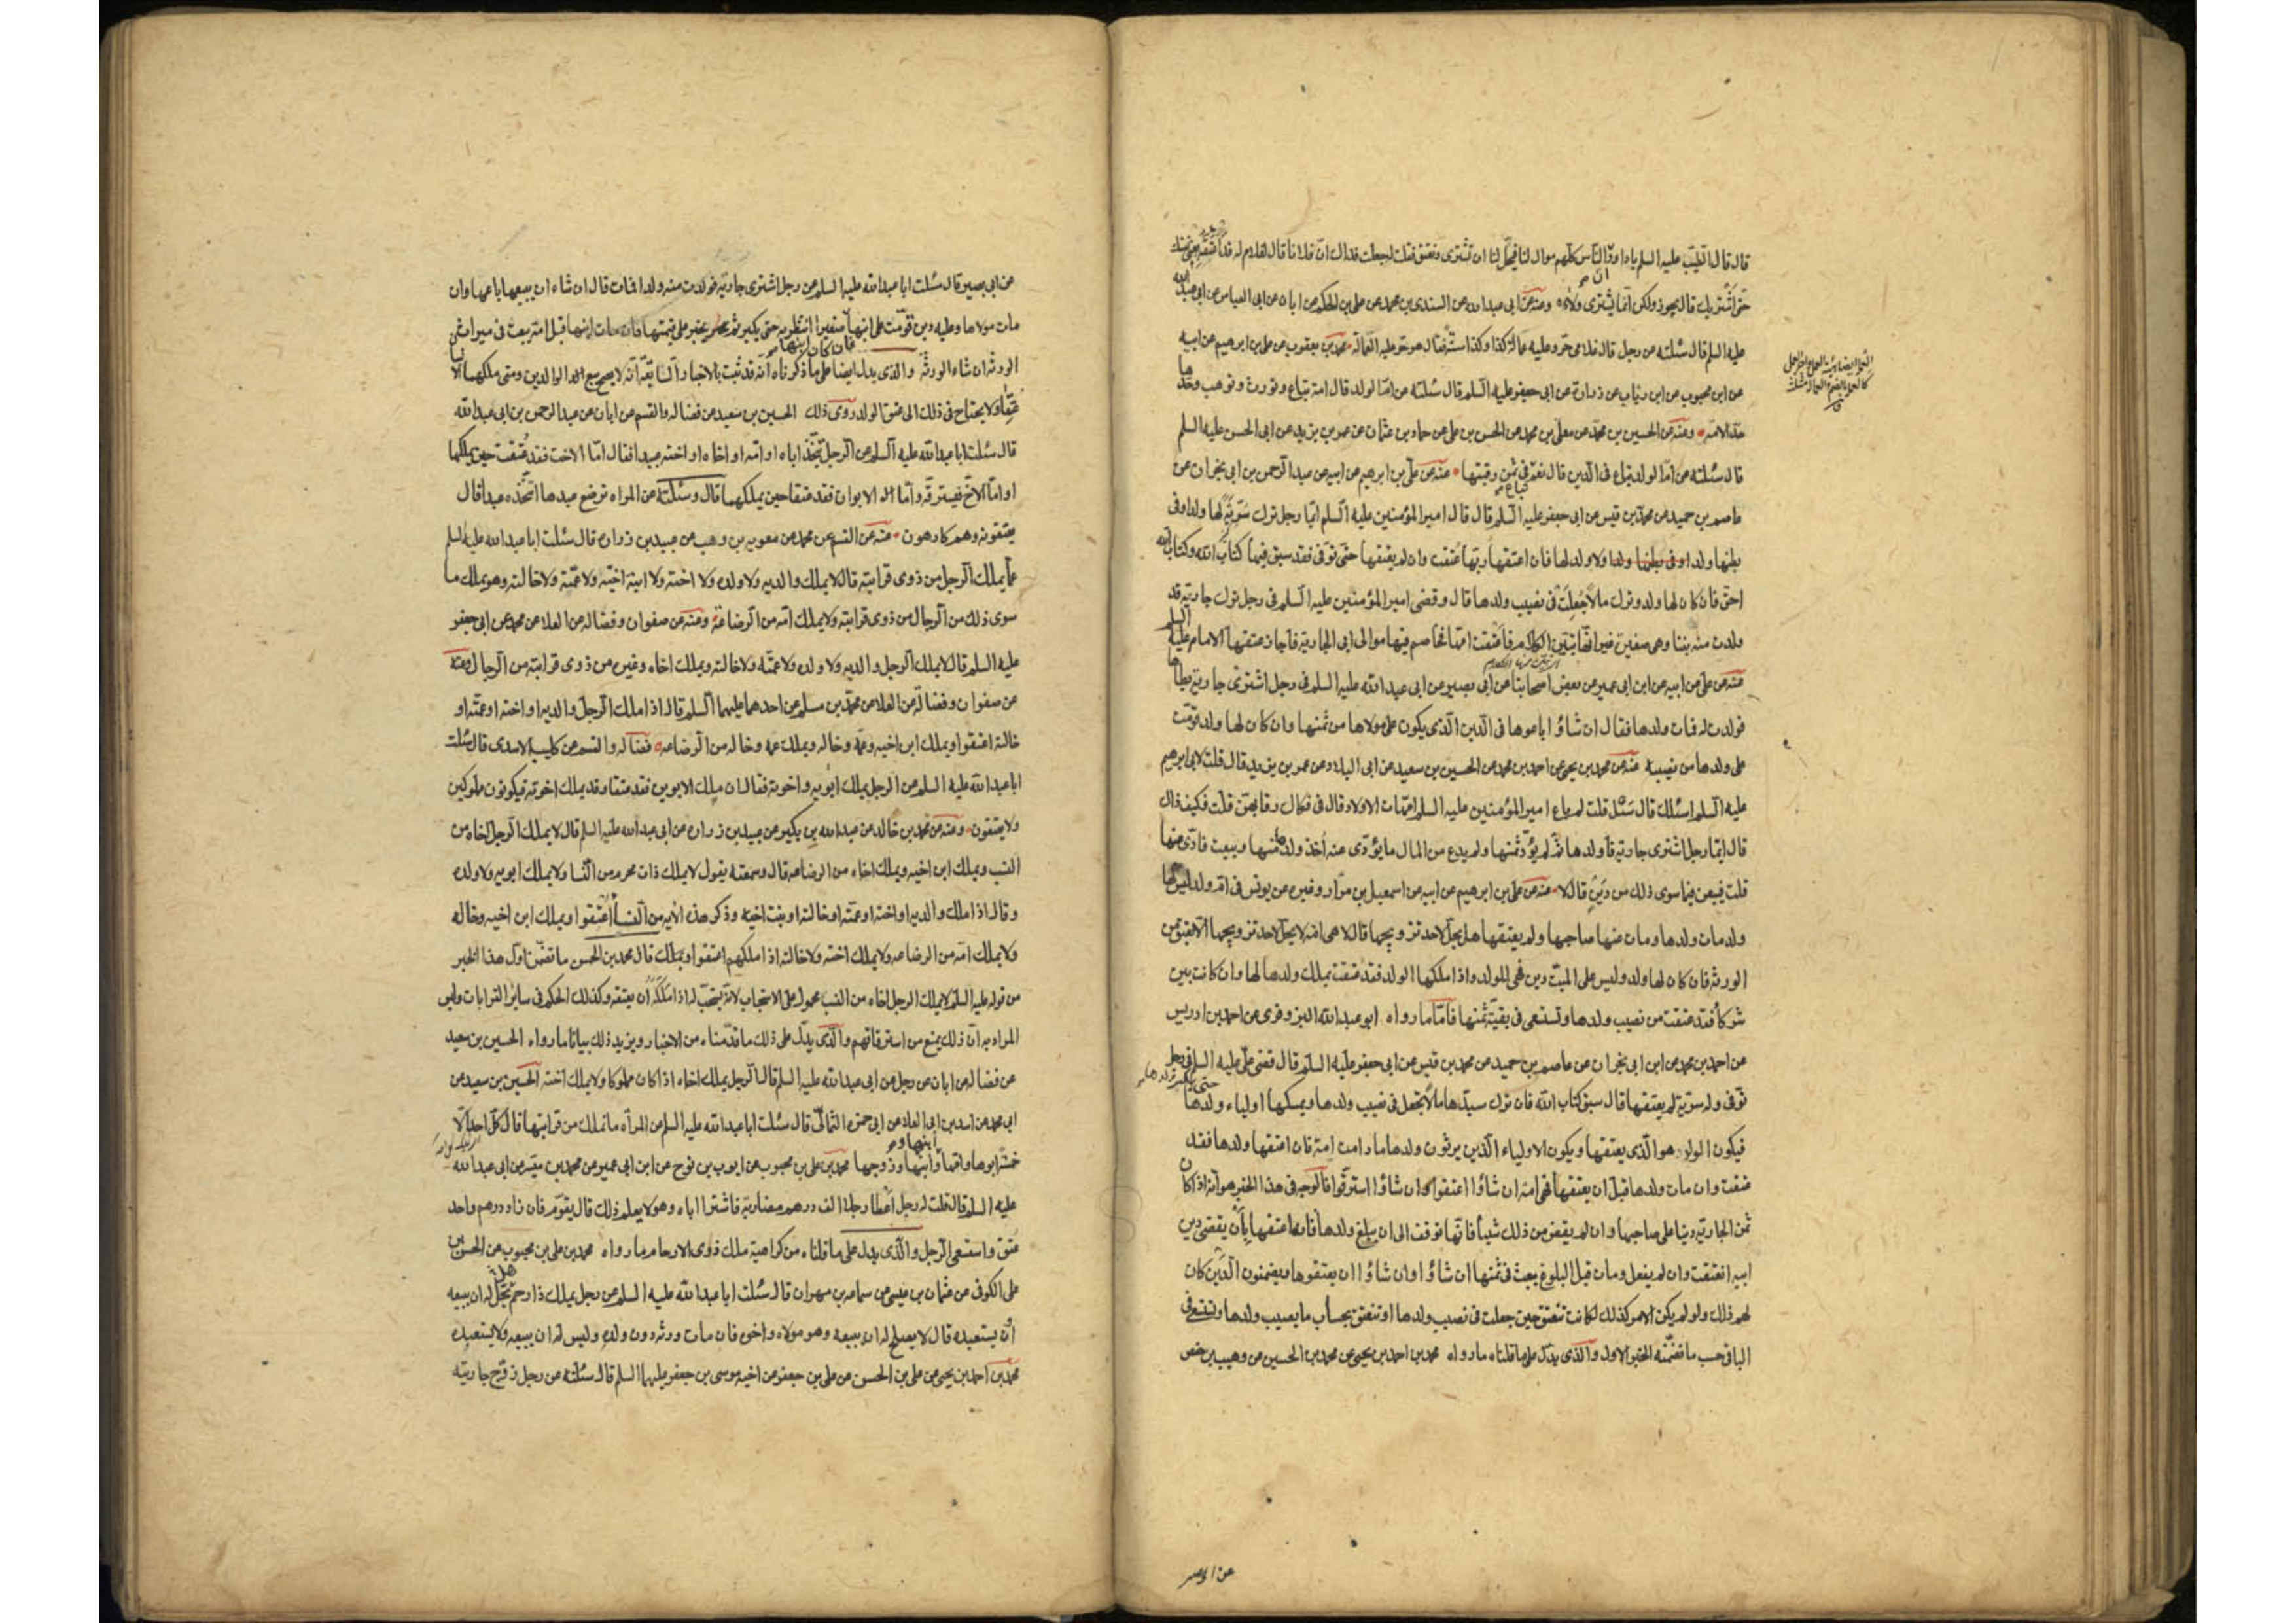 قال قال الطيب عليه السلم ياداود الناس كلهم موال لنا فيحل لنا ان نشترى ونعتق فقلت له جعلت فداك ان فلانا قال لغلام له قد اعتقه بعنى نفسك
حتى اشتريك قال يجوز ولكن انما يشترى ولاءه وعنه عن ابى عبدالله عن السندى بن محمد عن على بن الحكم عن ابان عن ابى العباس عن ابى عبدالله
عليه السلم قال سئلته عن رجل قال غلامى حر وعليه عمالة كذا وكذا سنة فقال هو حر وعليه العمالة محمد بن يعقوب عن على بن ابرهيم عن ابيه
عن ابن محبوب عن ابن رئاب عن زرارة عن ابى جعفر عليه السلم قال سئلته عن ام الولد قال امة تباع وتورث وتوهب وحدها
حد الامة وعنه عن الحسين بن محمد عن معلى بن محمد عن الحسن بن على عن حماد بن عثمان عن عمر بن يزيد عن ابى الحسن عليه السلم
قال سئلته عن ام الولد تباع فى الدين قال نعم فى ثمن رقبتها عنه عن على بن ابرهيم عن ابيه عن عبد الرحمن بن ابى نجران عن
عاصم بن حميد عن محمد بن قيس عن ابى جعفر عليه السلم قال قال امير المؤمنين عليه السلم ايما رجل ترك سرية لها ولد او فى
بطنها ولد او فى بطنها ولد او لا ولد لها فان اعتقها ربها عتقت وان لم يعتقها حتى توفى فقد سبق فيها كتاب الله وكتاب الله
احق فان كان لها ولد وترك مالا جعلت فى نصيب ولدها قال وقضى امير المؤمنين عليه السلم فى رجل ترك جارية قد
ولدت منه بنتا وهى صغيرة غير انها تبين الكلام فاعتقت امها فخاصم فيها موالى ابى الجارية فاجاز عتقها الامام عليه السلم
عنه عن على عن ابيه عن ابن ابى عمير عن بعض اصحابنا عن ابى بصير عن ابى عبد الله عليه السلم فى رجل اشترى جارية يطأها
فولدت له فمات ولدها فقال ان شاؤا باعوها فى الدين الذى يكون على مولاها من ثمنها وان كان لها ولد قومت
على ولدها من نصيبه عنه عن محمد بن يحيى عن احمد بن محمد عن الحسين بن سعيد عن ابى البلاد عن عمر بن يزيد قال قلت لابى ابرهيم
عليه السلم اسئلك قال سل قلت لم باع امير المؤمنين عليه السلم امهات الاولاد قال فى فكاك رقابهن قلت فكيف ذلك
قال ايما رجل اشترى جارية فاولدها ثم لم يؤد ثمنها ولم يدع من المال ما يؤدى عنه اخذ ولدها منها وبيعت فادى ثمنها
قلت فيبعن فيما سوى ذلك من دين قال لا عنه عن على بن ابرهيم عن ابيه عن اسمعيل بن مرار وغيره عن يونس فى ام ولد ليس لها
ولد مات ولدها ومات عنها صاحبها ولم يعتقها هل يحل لاحد تزويجها قال لا هى امة لا يحل لاحد تزويجها الا بعتق من
الورثة فان كان لها ولد وليس على الميت دين فهى للولد واذا ملكها الولد فقد عتقت بملك ولدها لها وان كانت بين
شركاء فقد عتقت من نصيب ولدها وتستسعى فى بقية ثمنها فاما ما رواه ابو عبد الله البزوفرى عن احمد بن ادريس
عن احمد بن محمد عن ابن ابى نجران عن عاصم بن حميد عن محمد بن قيس عن ابى جعفر عليه السلم قال قضى على عليه السلم فى رجل
توفى وله سرية لم يعتقها قال سبق كتاب الله فان ترك سيدها مالا تجعل فى نصيب ولدها ويمسكها اولياء ولدها
فيكون الولد هو الذى يعتقها ويكون الاولياء الذين يرثون ولدها ما دامت امة فان اعتقها ولدها فقد
عتقت وان مات ولدها قبل ان يعتقها فهى امة ان شاؤا اعتقوا وان شاؤا استرقوا فالوجه فى هذا الخبر هو انه اذا كان
ثمن الجارية دينا على صاحبها وان لم يقض من ذلك شيئا فانها توقف الى ان يبلغ ولدها فان اعتقها بان يقضى دين
ابيه انعتقت وان لم يفعل ومات قبل البلوغ بيعت فى ثمنها ان شاؤا وان شاؤا ان يعتقوها ويضمنون الدين كان
لهم ذلك ولو لم يكن الامر كذلك لكانت تنعتق حين جعلت فى نصيب ولدها او تنعتق بحساب ما يصيب ولدها وتستسعى فى
الباقى حسب ما تضمنه الخبر الاول والذى يدل على ما قلناه ما رواه محمد بن احمد بن يحيى عن محمد بن الحسين عن وهيب بن حفص
عن ابى بصير
عن ابى بصير قال سئلت ابا عبد الله عليه السلم عن رجل اشترى جارية فولدت منه ولدا فمات قال ان شاء ان يبيعها باعها وان
مات مولاها وعليه دين قومت على ابنها فان كان ابنها صغيرا انتظر به حتى يكبر ثم يجبر على قيمتها فان مات ابنها قبل امه بيعت فى ميراث
الورثة ان شاء الورثة والذى يدل ايضا على ما ذكرناه انه قد ثبت بالاخبار السابقة انه لا يصح بيع الوالدين ومتى ملكهما
عتقا ولا يحتاج فى ذلك الى عتق الولد روى ذلك الحسين بن سعيد عن فضالة والقسم عن ابان عن عبد الرحمن بن ابى عبد الله
قال سئلت ابا عبد الله عليه السلم عن الرجل يتخذ اباه او امه او اخاه او اخته عبيدا فقال اما الاخت فقد عتقت حين يملكها
واما الاخ فيسترقه واما الابوان فقد عتقا حين يملكهما قال وسئلته عن المراة ترضع عبدها اتتخذه عبدا قال
يعتقونه وهم كارهون عنه عن القسم عن محمد عن معوية بن وهب عن عبيد بن زرارة قال سئلت ابا عبد الله عليه السلم
عما يملك الرجل من ذوى قرابته قال لا يملك والديه ولا ولده ولا اخته ولا ابنة اخته ولا عمته ولا خالته وهو يملك ما
سوى ذلك من الرجال من ذوى قرابته ولا يملك امه من الرضاعة وعنه عن صفوان وفضالة عن العلا عن محمد عن ابى جعفر
عليه السلم قال لا يملك الرجل والديه ولا ولده ولا عمته ولا خالته ويملك اخاه وغيره من ذوى قرابته من الرجال وعنه
عن صفوان وفضالة عن العلا عن محمد بن مسلم عن احدهما عليهما السلم قال اذا ملك الرجل والديه او اخته او عمته او
خالته اعتقوا ويملك ابن اخيه وعمه وخاله ويملك عمه وخاله من الرضاعة فضالة والقسم عن كليب الاسدى قال سئلت
ابا عبد الله عليه السلم عن الرجل يملك ابويه واخوته فقال ان ملك الابوين فقد عتقا وقد يملك اخوته فيكونون مملوكين
ولا يعتقون وعنه عن محمد بن خالد عن عبد الله بن بكير عن عبيد بن زرارة عن ابى عبد الله عليه السلم قال لا يملك الرجل اخاه من
النسب ويملك ابن اخيه ويملك اخاه من الرضاعة قال وسمعته يقول لا يملك ذات محرم من النسا ولا يملك ابويه ولا ولده
وقال اذا ملك والديه او اخته او عمته او خالته او بنت اخيه وذكر هذه الاية من النسا اعتقوا ويملك ابن اخيه وخاله
ولا يملك امه من الرضاعة ولا يملك اخته ولا خالته اذا ملكهم اعتقوا قال محمد بن الحسن ما تضمن اول هذا الخبر
من قوله عليه السلم لا يملك الرجل اخاه من النسب محمول على الاستحباب لانه يستحب له اذا ملكه ان يعتقه وكذلك الحكم فى ساير القرابات وليس
المراد به ان ذلك يمنع من استرقاقهم والذى يدل على ذلك ما قدمناه من الاخبار ويزيد ذلك بيانا ما رواه الحسين بن سعيد
عن فضالة عن ابان عن رجل عن ابى عبد الله عليه السلم قال الرجل يملك اخاه اذا كان مملوكا ولا يملك اخته الحسين بن سعيد عن
ابى محمد عن اسد بن ابى العلاء عن ابى حمزة الثمالى قال سئلت ابا عبد الله عليه السلم عن المرأة ما تملك من قرابتها قال كل احد الا
خمسة ابوها وامها وابنها وابنتها وزوجها محمد بن على بن محبوب عن ايوب بن نوح عن ابن ابى عمير عن محمد بن ميسر عن ابى عبد الله
عليه السلم قال قلت له رجل اعطا رجلا الف درهم مضاربة فاشترا اباه وهو لا يعلم ذلك قال يقوم فان زاد درهم واحد
عتق واستسعى الرجل والذى يدل على ما قلناه من كراهية ملك ذوى الارحام ما رواه محمد بن على بن محبوب عن الحسن بن
على الكوفى عن عثمان بن عيسى عن سماعة بن مهران قال سئلت ابا عبد الله عليه السلم عن رجل يملك ذا رحم هل يحل له ان يبيعه
او يستعبده قال لا يصلح له ان يبيعه وهو مولاه واخوه فان مات ورثه دون ولده وليس له ان يبيعه ولا يستعبده
محمد بن احمد بن يحيى عن على بن الحسن عن على بن جعفر عن اخيه موسى بن جعفر عليهما السلم قال سئلته عن رجل زوج جاريته